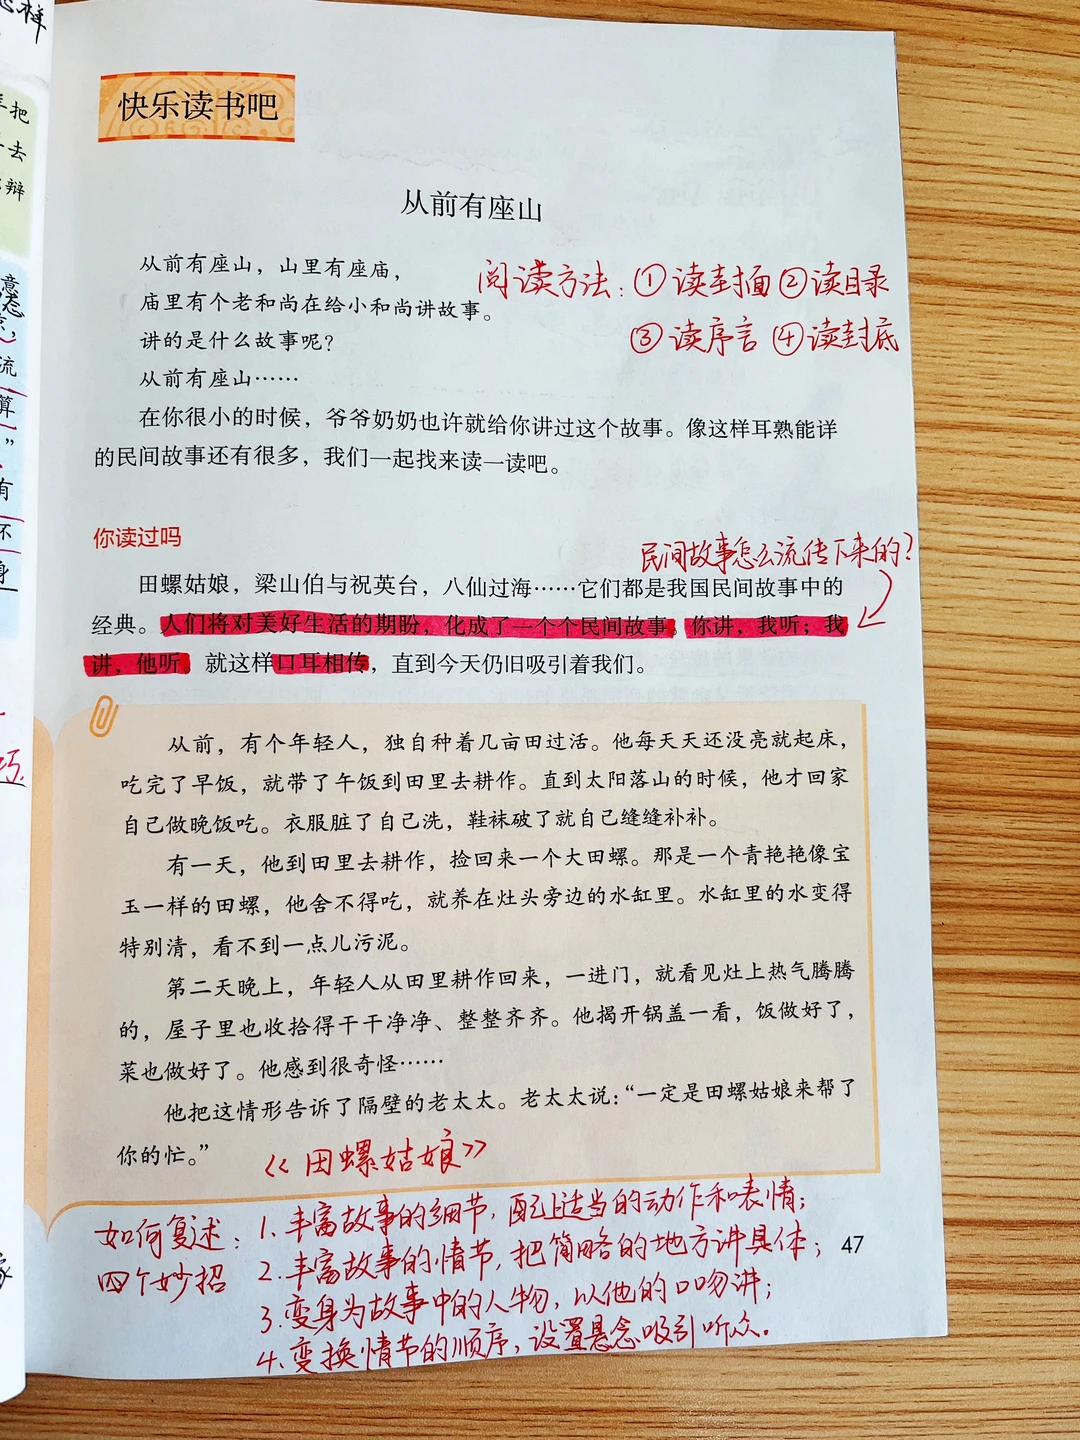 怎样
把
去
辩
意
流
算
”
有
不
身
巧.
快乐读书吧
从前有座山
从前有座山，山里有座庙，
庙里有个老和尚在给小和尚讲故事。
讲的是什么故事呢？
从前有座山……
阅读方法：①读封面②读目录
③读序言④读封底
在你很小的时候，爷爷奶奶也许就给你讲过这个故事。像这样耳熟能详
的民间故事还有很多，我们一起找来读一读吧。
你读过吗
民间故事怎么流传下来的？
田螺姑娘，梁山伯与祝英台，八仙过海……它们都是我国民间故事中的
经典。人们将对美好生活的期盼，化成了一个个民间故事。你讲，我听；我
讲，他听。就这样口耳相传，直到今天仍旧吸引着我们。
从前，有个年轻人，独自种着几亩田过活。他每天天还没亮就起床，
吃完了早饭，就带了午饭到田里去耕作。直到太阳落山的时候，他才回家
自己做晚饭吃。衣服脏了自己洗，鞋袜破了就自己缝缝补补。
有一天，他到田里去耕作，捡回来一个大田螺。那是一个青艳艳像宝
玉一样的田螺，他舍不得吃，就养在灶头旁边的水缸里。水缸里的水变得
特别清，看不到一点儿污泥。
第二天晚上，年轻人从田里耕作回来，一进门，就看见灶上热气腾腾
的，屋子里也收拾得干干净净、整整齐齐。他揭开锅盖一看，饭做好了，
菜也做好了。他感到很奇怪……
他把这情形告诉了隔壁的老太太。老太太说：“一定是田螺姑娘来帮了
你的忙。”
《田螺姑娘》
如何复述：
四个妙招
1.丰富故事的细节，配上适当的动作和表情；
2.丰富故事的情节，把简略的地方讲具体；
3.变身为故事中的人物，以他的口吻讲；
4.变换情节的顺序，设置悬念吸引听众。
47